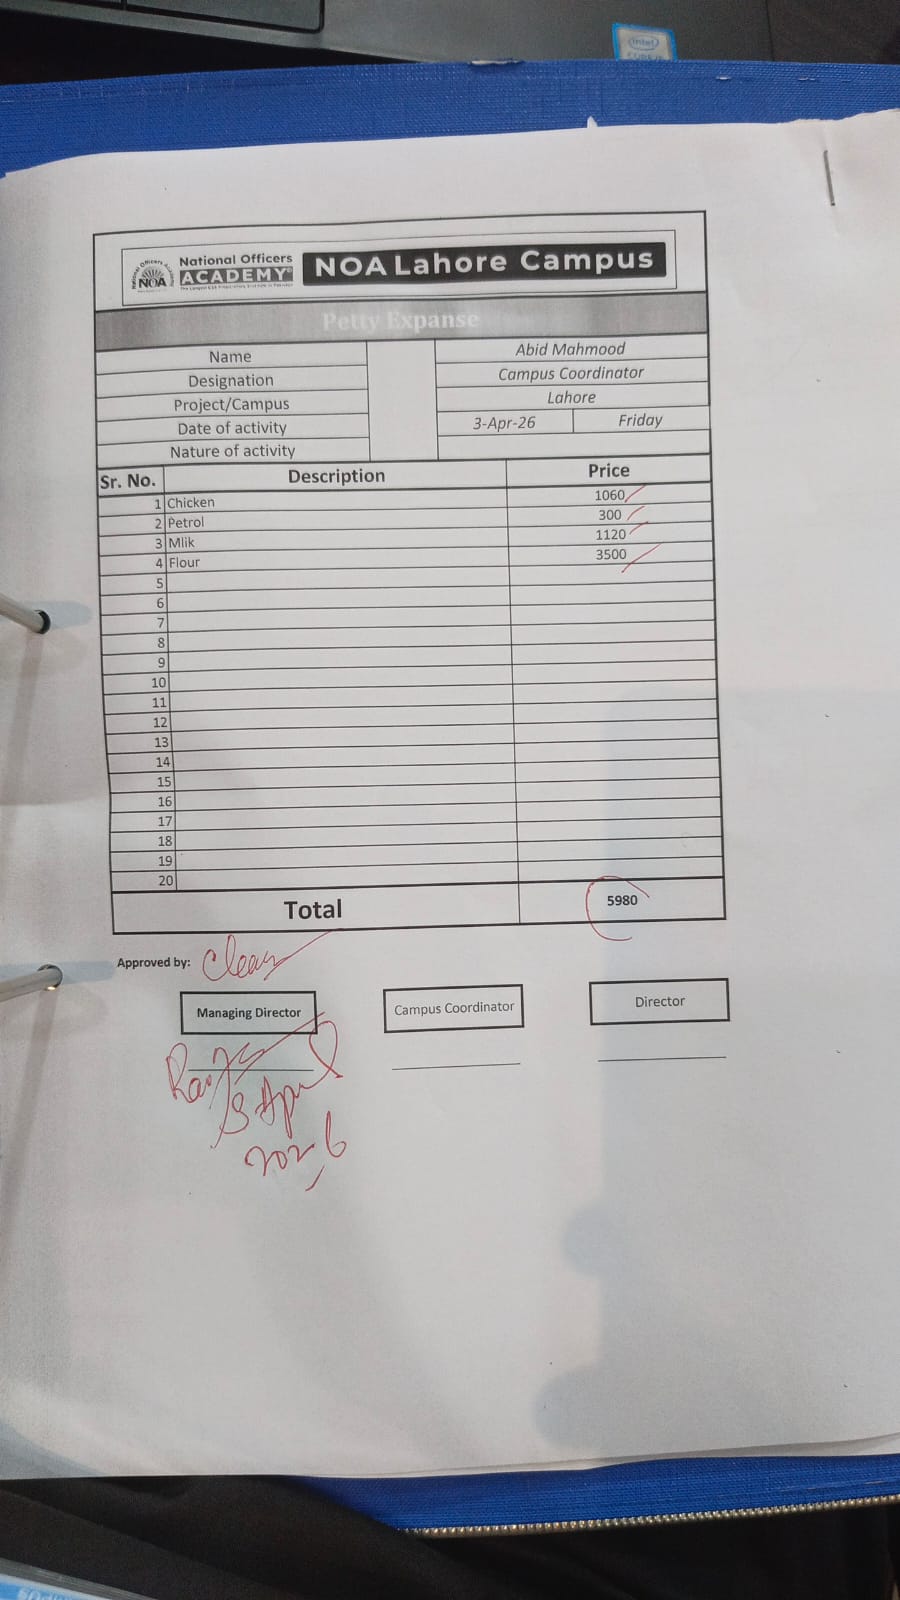 intel
CORE i5
National Officers
ACADEMY
NOA
NOA Lahore Campus
Petty Expanse
Name Abid Mahmood
Designation Campus Coordinator
Project/Campus Lahore
Date of activity 3-Apr-26 Friday
Nature of activity
Sr. No. Description Price
1 Chicken 1060
2 Petrol 300
3 Mlik 1120
4 Flour 3500
5
6
7
8
9
10
11
12
13
14
15
16
17
18
19
20
Total 5980
Approved by: Clear
Managing Director Campus Coordinator Director
8 April
2026